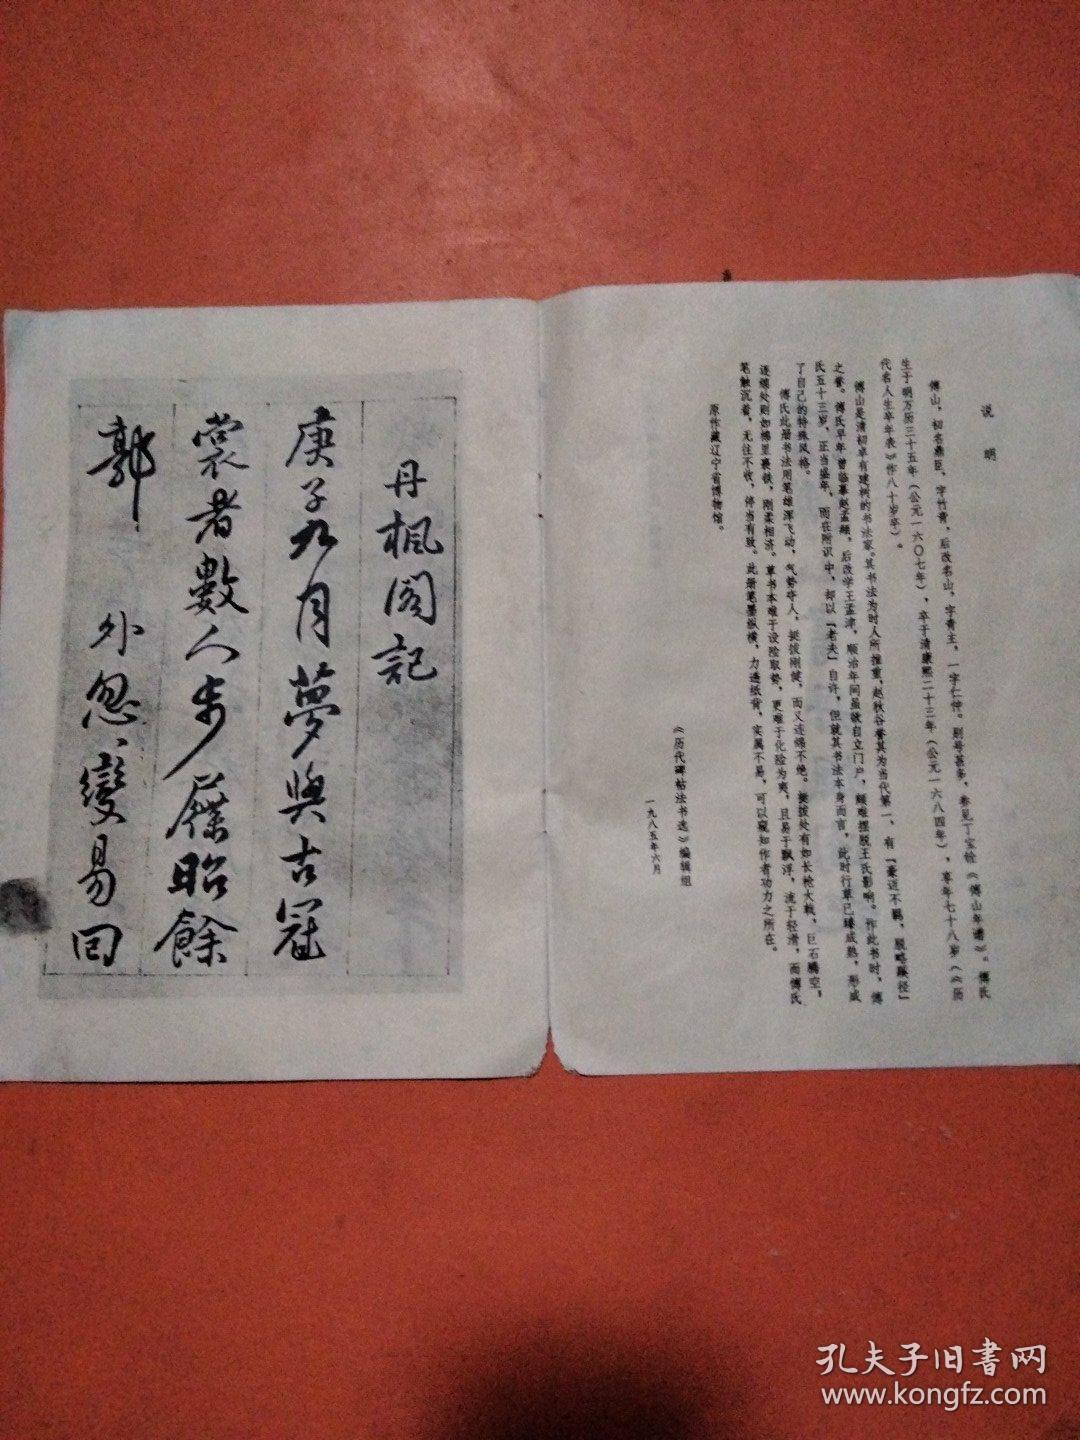 说明
傅山，初名鼎臣，字竹青，后改名山，字青主，一字仁仲。别号甚多，参见丁宝铨《傅山年谱》。傅氏
生于明万历三十五年（公元一六〇七年），卒于清康熙二十三年（公元一六八四年），享年七十八岁（《历
代名人生卒年表》作八十岁卒）。
傅山是清初卓有建树的书法家。其书法为时人所推重，赵秋谷誉其为当代第一，有「豪迈不羁，脱略蹊径」
之誉。傅氏早年曾临摹赵孟頫，后改学王孟津，顺治年间虽欲自立门户，颇难摆脱王氏影响。作此书时，傅
氏五十三岁，正当盛年，而在附识中，却以「老夫」自许，但就其书法本身而言，此时行草已臻成熟，形成
了自己的特殊风格。
傅氏此册书法用笔雄浑飞动，气势夺人，挺拔刚健，而又连绵不绝。挺拔处有如长枪大戟，巨石腾空，
连绵处则如棉里裹铁，刚柔相济。草书本难于设险取势，更难于化险为夷，且易于飘浮，流于轻滑，而傅氏
笔触沉着，无往不收，停当有致。此册笔墨纵横，力透纸背，实属不易，可以窥知作者功力之所在。
原作藏辽宁省博物馆。
《历代碑帖法书选》编辑组
一九八五年六月
丹楓閣記
庚子九月夢與古冠
裳者數人步屧昭餘
郭 外忽變易回
孔夫子旧書网
www.kongfz.com